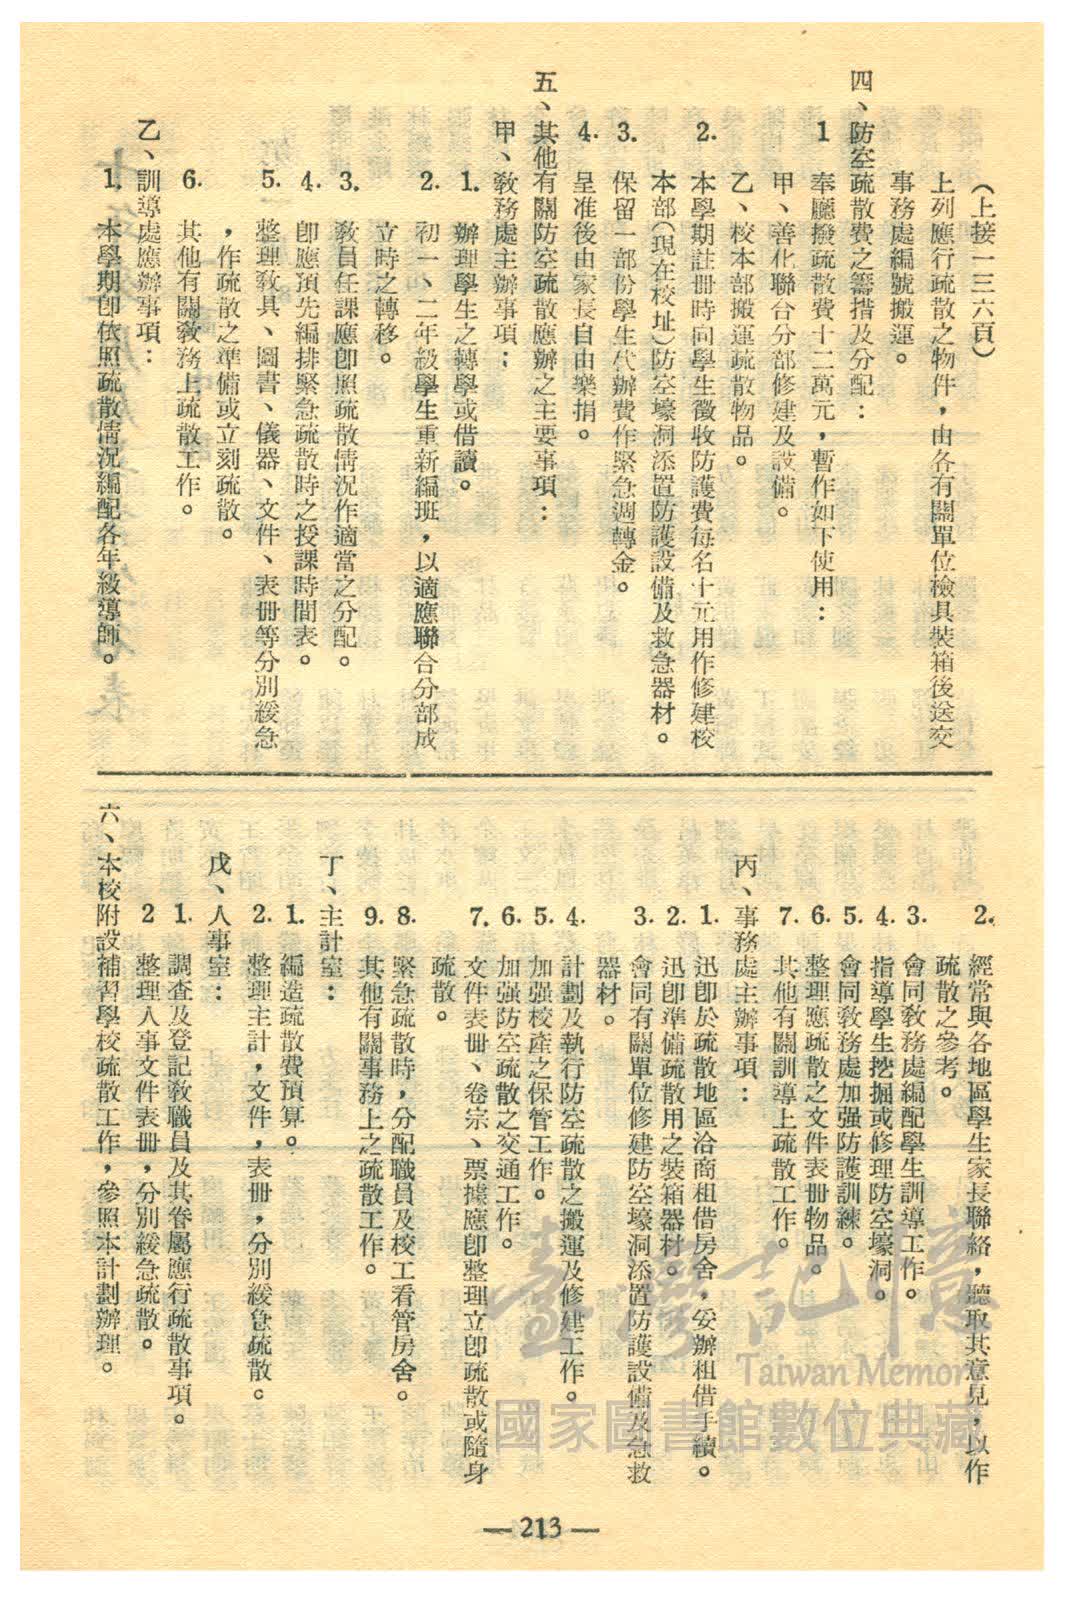 (上接一三六頁)
上列應行疏散之物件，由各有關單位檢具裝箱後送交
事務處編號搬運。
四、防空疏散費之籌措及分配：
1 奉廳撥疏散費十二萬元，暫作如下使用：
甲、善化聯合分部修建及設備。
乙、校本部搬運疏散物品。
2. 本學期註册時向學生徵收防護費每名十元用作修建校
本部(現在校址)防空壕洞添置防護設備及救急器材。
3. 保留一部份學生代辦費作緊急週轉金。
4. 呈准後由家長自由樂捐。
五、其他有關防空疏散應辦之主要事項：
甲、教務處主辦事項：
1. 辦理學生之轉學或借讀。
2. 初一、二年級學生重新編班，以適應聯合分部成
立時之轉移。
3. 教員任課應卽照疏散情況作適當之分配。
4. 卽應預先編排緊急疏散時之授課時間表。
5. 整理教具、圖書、儀器、文件、表册等分別緩急
，作疏散之準備或立刻疏散。
6. 其他有關教務上疏散工作。
乙、訓導處應辦事項：
1. 本學期卽依照疏散情況編配各年級導師。
2. 經常與各地區學生家長聯絡，聽取其意見，以作
疏散之參考。
3. 會同教務處編配學生訓導工作。
4. 指導學生挖掘或修理防空壕洞。
5. 會同教務處加强防護訓練。
6. 整理應疏散之文件表册物品。
7. 其他有關訓導上疏散工作。
丙、事務處主辦事項：
1. 迅卽於疏散地區洽商租借房舍，妥辦租借手續。
2. 迅卽準備疏散用之裝箱器材。
3. 會同有關單位修建防空壕洞添置防護設備及急救
器材。
4. 計劃及執行防空疏散之搬運及修建工作。
5. 加强校產之保管工作。
6. 加强防空疏散之交通工作。
7. 文件表册、卷宗、票據應卽整理立卽疏散或隨身
疏散。
8. 緊急疏散時，分配職員及校工看管房舍。
9. 其他有關事務上之疏散工作。
丁、主計室：
1. 編造疏散費預算。
2. 整理主計，文件，表册，分別緩急疏散。
戊、人事室：
1. 調查及登記教職員及其眷屬應行疏散事項。
2 整理人事文件表册，分別緩急疏散。
六、本校附設補習學校疏散工作，參照本計劃辦理。
—213—
臺灣記憶
Taiwan Memory
國家圖書館數位典藏